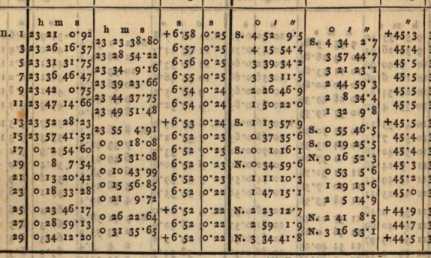 h m s h m s s s ° ′ ″ ° ′ ″ ″
n. 1 23 21 0·92 +6·58 0·25 S. 4 52 9·5 +45·3
23 23 38·80 S. 4 34 2·7
3 23 26 16·57 6·57 0·25 4 15 54·4 45·4
23 28 54·22 3 57 44·7
5 23 31 31·75 6·56 0·25 3 39 34·2 45·5
23 34 9·16 3 21 23·1
7 23 36 46·47 6·55 0·25 3 3 11·5 45·5
23 39 23·66 2 44 59·3
9 23 42 0·75 6·54 0·25 2 26 46·9 45·5
23 44 37·75 2 8 34·4
11 23 47 14·66 6·54 0·24 1 50 22·0 45·5
23 49 51·48 1 32 9·8
13 23 52 28·23 +6·53 0·24 S. 1 13 57·9 +45·5
23 55 4·91 S. 0 55 46·5
15 23 57 41·52 6·52 0·24 0 37 35·6 45·4
0 0 18·08 S. 0 19 25·5
17 0 2 54·60 6·52 0·23 S. 0 1 16·1 45·4
0 5 31·08 N. 0 16 52·3
19 0 8 7·54 6·52 0·23 N. 0 34 59·6 45·3
0 10 43·99 0 53 5·6
21 0 13 20·42 6·52 0·22 1 11 10·3 45·2
0 15 56·85 1 29 13·6
23 0 18 33·28 6·52 0·22 1 47 15·1 45·0
0 21 9·72 2 5 14·9
25 0 23 46·17 +6·52 0·22 N. 2 23 12·7 +44·9
0 26 22·64 N. 2 41 8·5
27 0 28 59·13 6·52 0·22 2 59 1·9 44·7
0 31 35·65 N. 3 16 53·1
29 0 34 12·20 +6·52 0·22 N. 3 34 41·8 +44·5